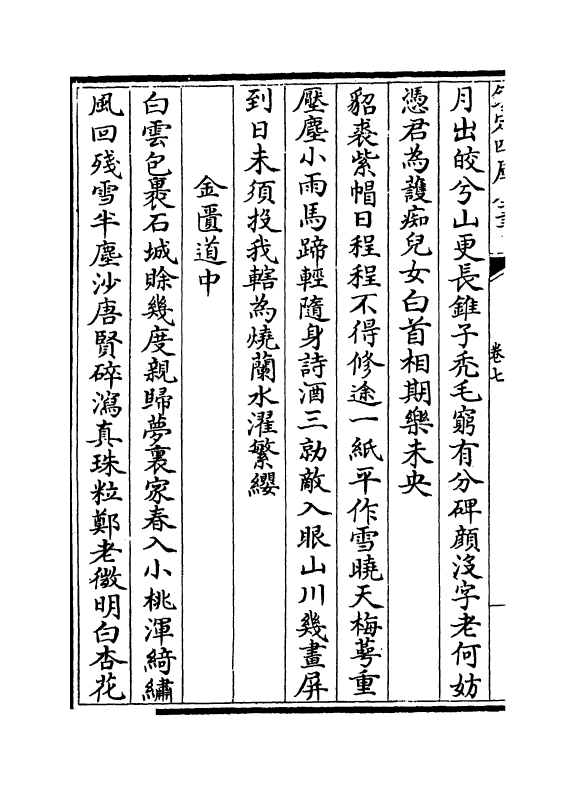 卷七
月出皎兮山更長錐子禿毛窮有分碑顔沒字老何妨
憑君為護痴兒女白首相期樂未央
貂裘紫帽日程程不得修途一紙平作雪曉天梅蕚重
壓塵小雨馬蹄輕隨身詩酒三勍敵入眼山川幾畫屏
到日未須投我轄為燒蘭水濯繁纓
金匱道中
白雲包裹石城賒幾度親歸夢裏家春入小桃渾綺繡
風回殘雪半塵沙唐賢碎瀉真珠粒鄭老微明白杏花